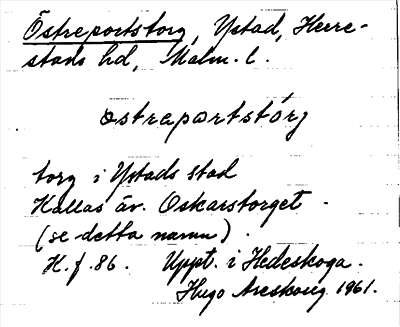 Östreportstorg, Ystad, Herre-
stads hd, Malm. l.
ostreportstórg
torg i Ystads stad
Kallas äv. Oskarstorget.
(se detta namn).
H. f. 86. Uppt. i Hedeskoga.
Hugo Areskoug 1961.